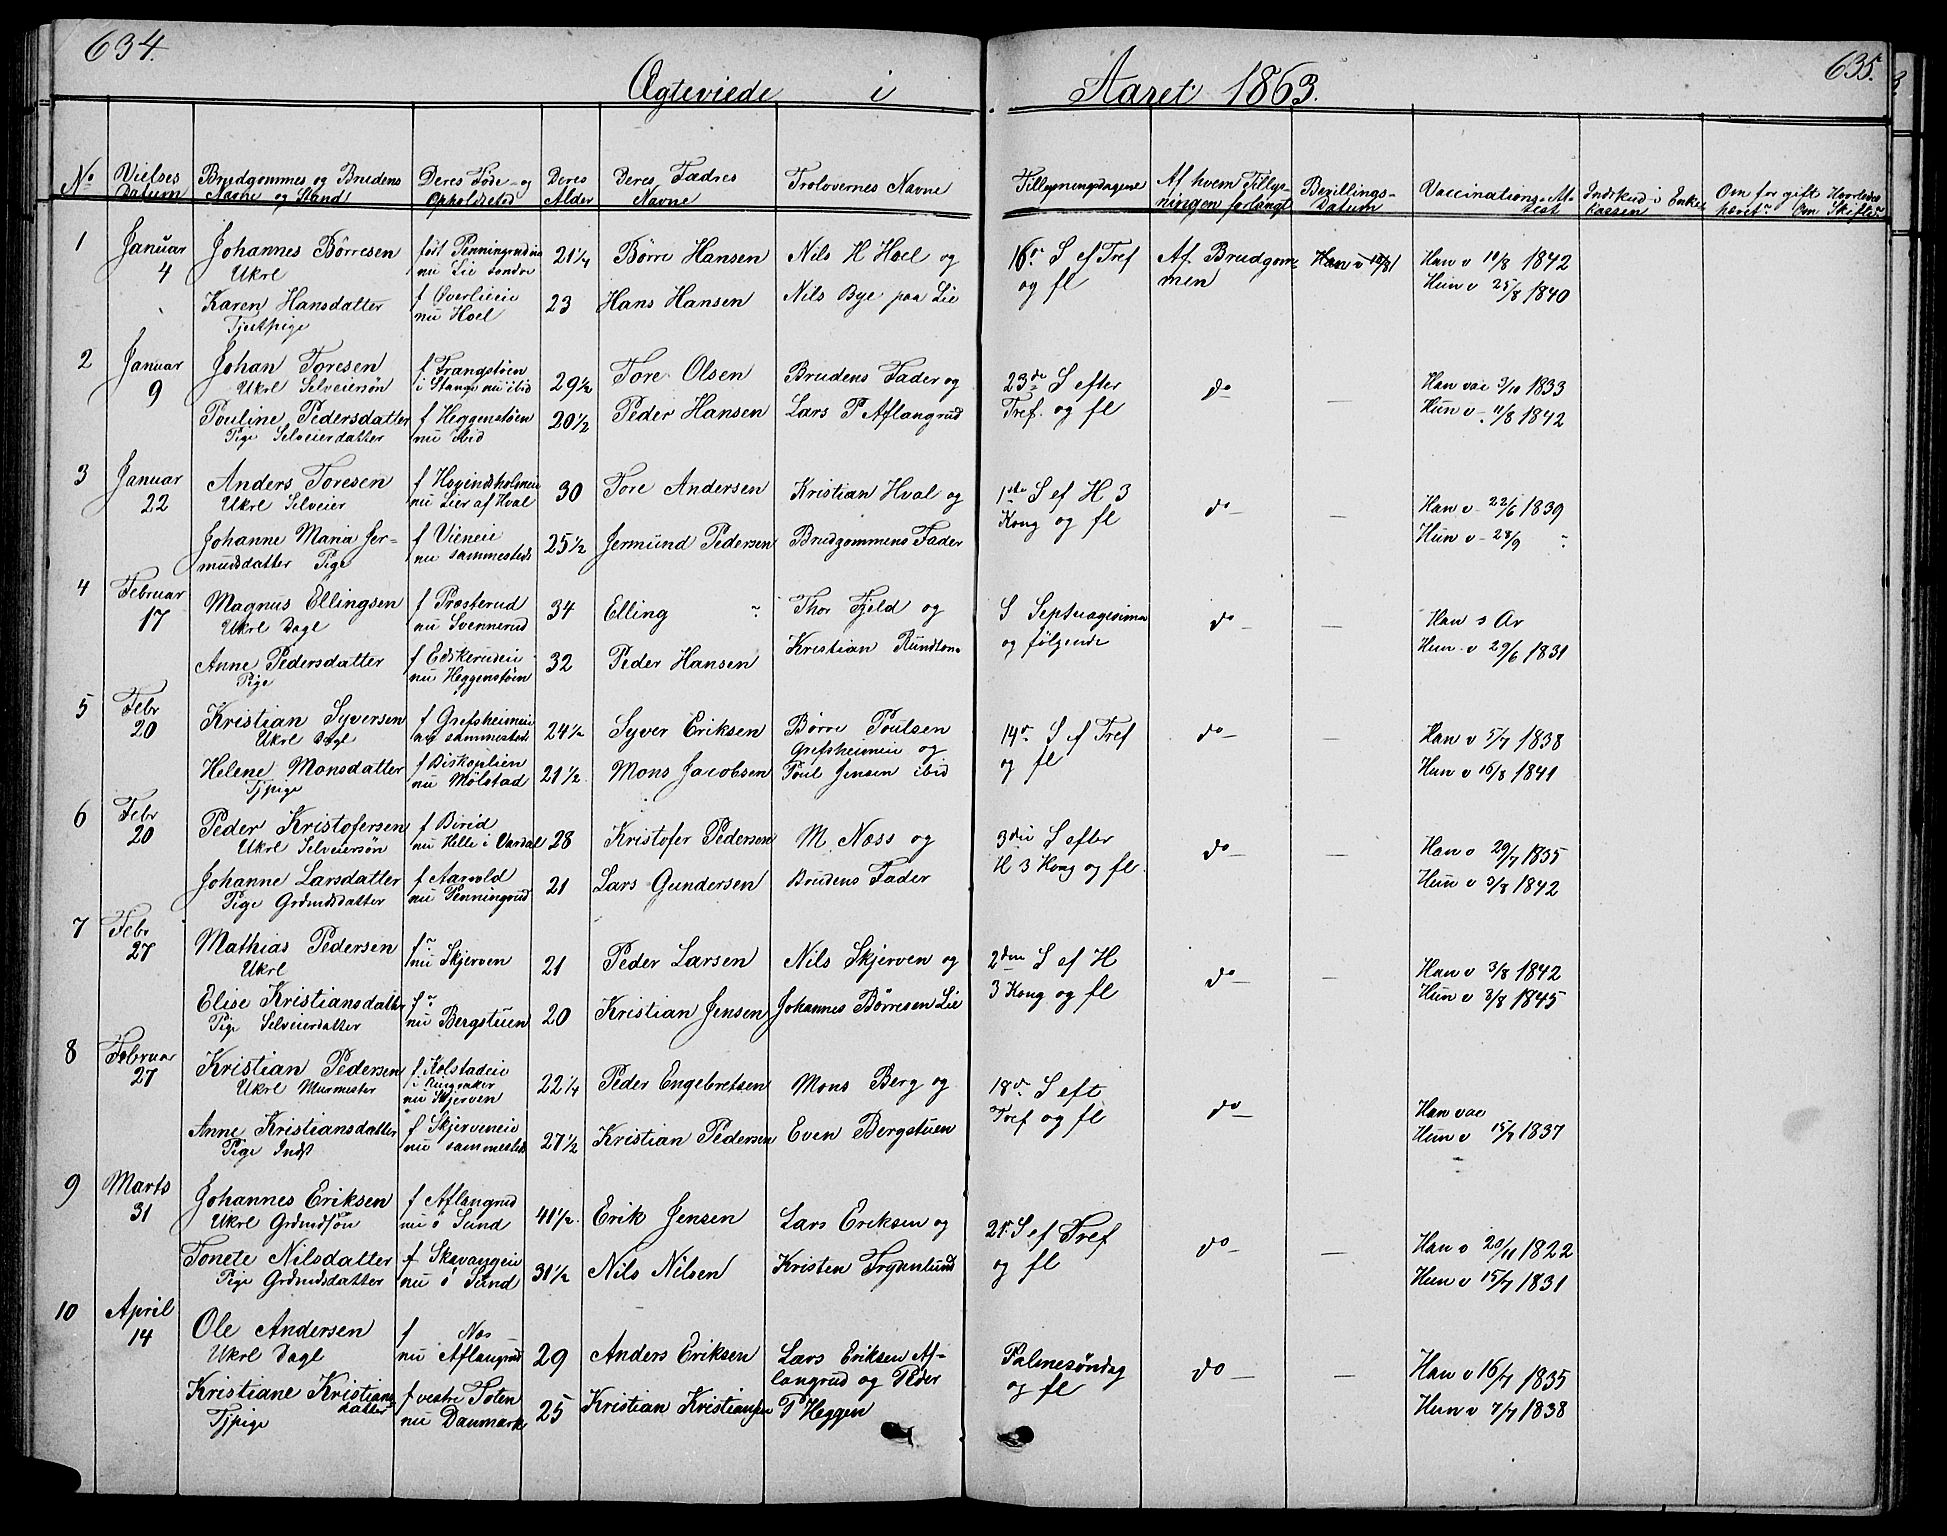 634.
635.
Ægteviede i Aaret 1863.
No
Vielses Datum
Brudgommes og Brudens Navne og Stand
Deres Føde- og Opholdssted
Deres Alder
Deres Fædres Navne
Trolovernes Navne
Tillysningsdagene
Af hvem Tillysningen forlangt
Bevillings-Datum
Vaccinations-Attest
Indskud i Enkekassen
Om før gift Hvorledes
været Om Skifte
1 Januar 4
Johannes Børresen født Penningrudeie 21 1/4 Børre Hansen Nils H Hoel og 16de S ef Tref Af Brudgom- Han v 19/8 1842
Ukrl nu Lie søndre og fl men Hun v 25/8 1840
Karen Hansdatter f Overlieeie 23 Hans Hansen Nils Bye paa Lie
Tjenstpige nu Hoel
2 Januar 9
Johan Toresen f Frandstøen 29 1/2 Tore Olsen Brudens Fader og 23de S efter do — Han vac 3/10 1833
Ukrl Selveiersøn i Stange nu ibid
Pouline Pedersdatter f Heggenstøen 20 1/2 Peder Hansen Lars P Aflangrud Tref. og fl Hun v - 11/8 1842
Pige Selveierdatter nu ibid
3 Januar 22
Anders Toresen f Hovindsholmeie 30 Tore Andersen Kristian Hval og 1ste S ef H 3 do — Han v - 22/6 1839
Ukrl Selveier nu Lier af Hval Kong og fl
Johanne Maria Jer- f Vieneie 25 1/2 Jermund Pedersen Brudgommens Fader Hun v - 28/9 "
mundsdatter Pige nu sammesteds
4 Februar 17
Magnus Ellingsen f Præsterud 34 Elling " Thor Fjeld og S Septuagesima do — Han s Ar
Ukrl Dagl nu Svennerud og følgende
Anne Pedersdatter f Edskerudeie 32 Peder Hansen Kristian Hun v 29/6 1831
Pige nu Heggenstøen
5 Febr 20
Kristian Syversen f Grefsheimeie 24 1/2 Syver Eriksen Børre Poulsen 14de S ef Tref do — Han v 5/7 1838
Ukrl Dagl nu sammesteds Grefsheimeie og og fl
Helene Monsdatter f Biskoplien 21 1/2 Mons Jacobsen Poul Jensen ibid Hun v 16/8 1841
Tjpige nu Mølstad
6 Febr 20
Peder Kristofersen f Birid 28 Kristofer Pedersen M Næss og 3die S efter do — Han v 29/7 1835
Ukrl Selveiersøn nu Helle i Vardal H 3 Kong og fl
Johanne Larsdatter f Aarvold 21 Lars Gundersen Brudens Fader Hun v 3/8 1842
Pige Grdmdsdatter nu Penningrud
7 Febr 27
Mathias Pedersen f " 21 Peder Larsen Nils Skjerven og 2den S ef H do — Han v 3/8 1842
Ukrl nu Skjerven 3 Kong og fl
Elise Kristiansdatter f " 20 Kristian Jensen Johannes Børresen Lie Hun v 3/8 1845
Pige Selveierdatter nu Bergstuen
8 Februar 27
Kristian Pedersen f Kolstadeie 22 1/4 Peder Engebretsen Mons Berg og 18de S eft do — Han vac
Ukrl Murmester i Ringsaker nu Skjerven Tref og fl
Anne Kristiansdatter f Skjerveneie 27 1/2 Kristian Pedersen Even Bergstuen Hun v 15/7 1837
Pige Indst nu sammesteds
9 Marts 31
Johannes Eriksen f Aflangrud 41 1/2 Erik Jensen Lars Eriksen og 21 S ef Tref do — Han v 20/11 1822
Ukrl Grdmdsøn nu ø Sund og fl
Tonete Nilsdatter f Skavangeie 31 1/2 Nils Nilsen Kristen Frydenlund Hun v 15/7 1831
Pige Grdmdsdatter nu ø Sund
10 April 14
Ole Andersen f Næs 29 Anders Eriksen Lars Eriksen Af- Palmesøndag do — Han v 16/7 1835
Ukrl Dagl nu Aflangrud langrud og Peder og fl
Kristiane Kristians f vestre Toten 25 Kristian Kristiansen P Heggen Hun v 7/7 1838
datter Tjpige nu Danmark